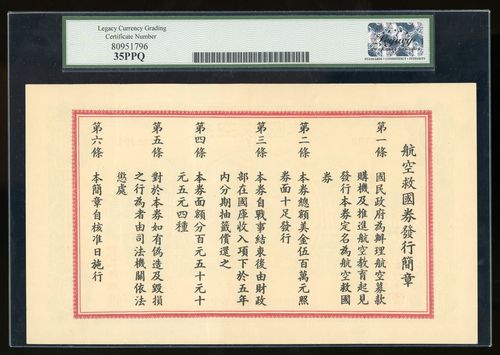 Legacy Currency Grading
Certificate Number
80951796
35PPQ
Legacy
STANDARDS • CONSISTENCY • INTEGRITY
航空救國券發行簡章
第一條 國民政府為辦理航空募款
購機及推進航空教育起見
發行本券定名為航空救國
券
第二條 本券總額美金伍百萬元照
券面十足發行
第三條 本券自戰事結束後由財政
部在國庫收入項下於五年
內分期抽籤償還之
第四條 本券面額分百元五十元十
元五元四種
第五條 對於本券如有偽造及毀損
之行為者由司法機關依法
懲處
第六條 本簡章自核准日施行